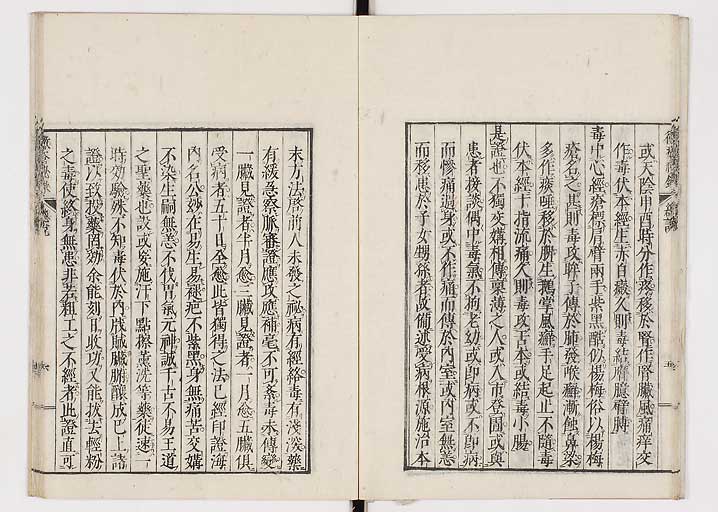 或天陰申酉時分作疼移於腎作腎臟風痛痒交
作毒伏本經生赤白癜久則毒結膺臆臂膊
毒中心經瘡標肩臂兩手紫黑酷似楊梅俗以楊梅
瘡名之甚則毒攻眸子傳於肺發喉癬漸蝕鼻梁
多作痰唾移於脾生鵝掌風癬手足起止不隨毒
伏本經十指流痛久則毒攻舌本或結毒小腸
是證也不獨交媾相傳禀薄之人或入市登圊或與
患者接談偶中毒氣不拘老幼或即病或不即病
而慘痛過身或不作痛而傳於內室或內室無恙
而移患於子女甥孫者故備述受病根源施治本
末方法啓前人未發之祕病有經絡毒有淺深藥
有緩急察脈審證應攻應補毫不可紊毒未傳變
一臟見證者半月愈三臟見證者一月愈五臟俱
受病者五十日全愈此皆獨得之法已經印證海
內名公妙在易生易祿疤不紫黑身無痛苦交媾
不染生嗣無恙不伐胃氣元神誠千古不易王道
之聖藥也設或妄施汗下點擦熏洗等藥徒速一
時効驗殊不知毒伏於內戕賊臟腑釀成已上諸
證以致投藥罔効余能刻日收功又能拔去輕粉
之毒使終身無患非若粗工之不經者此證直可